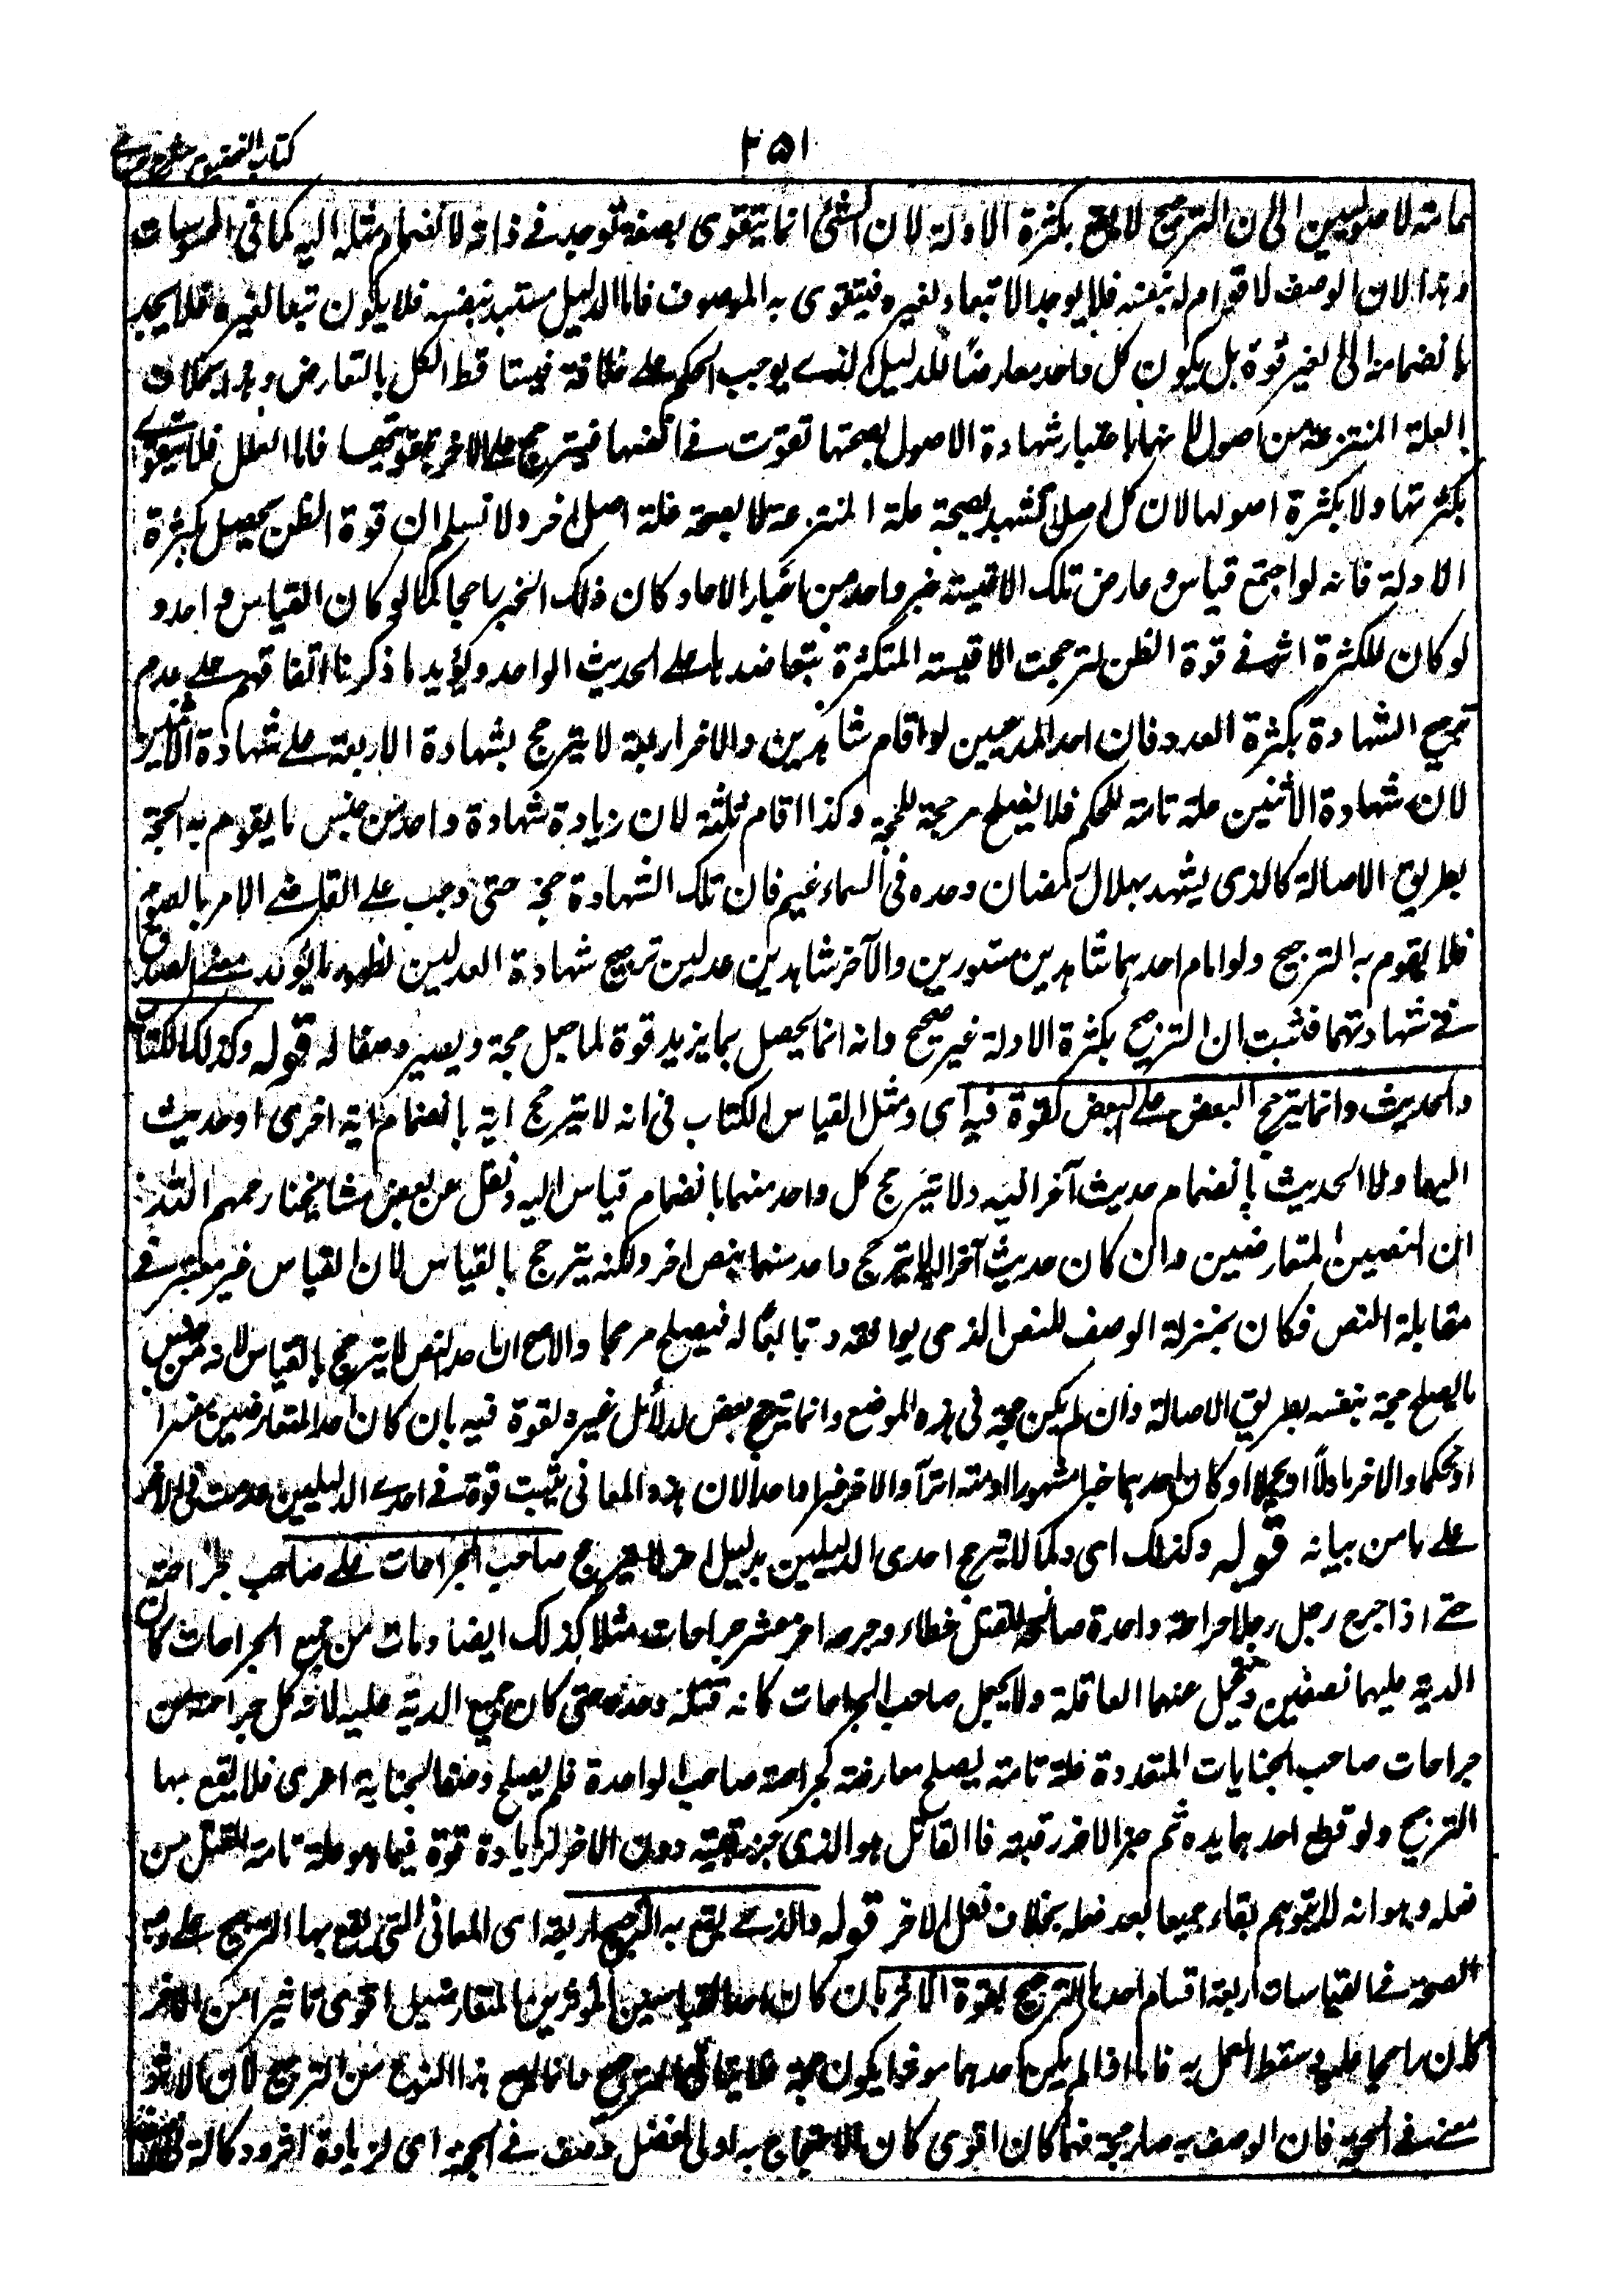 ٢٥١
كتاب التحقيق
عامة الاصوليين الى ان الترجيح لا يقع بكثرة الادلة لان الشئ انما يتقوى بصفة توجد فى ذاته لا بانضمام مثله اليه كما فى المحسوسات
وهذا لان الوصف لا قوام له بنفسه فلا يوجد الا تبعا لغيره فيتقوى به الموصوف فاما الدليل مستبد بنفسه فلا يكون تبعا لغيره فلا يحدث
بانضمامه الى الغير قوة بل يكون كل واحد معارضا للدليل الذى يوجب الحكم على خلافه فيتساقط الكل بالتعارض وهذا بخلاف
العلة المنتزعة من اصول لانها باعتبار شهادة الاصول بصحتها تقوت فى نفسها فتترجح على الاخرى بقوتها فاما العلل فلا يتقوى
بكثرتها ولا بكثرة اصولها لان كل اصل يشهد بصحة علة المنتزعة لا بصحة علة اصل اخر ولا نسلم ان قوة الظن يحصل بكثرة
الادلة فانه لو اجتمع قياس وعارض تلك الاقيسة خبر واحد من اخبار الاحاد كان ذلك الخبر راجحا كما لو كان القياس واحدو
لو كان للكثرة اثر فى قوة الظن لترجحت الاقيسة المتكثرة بتعاضدها على الحديث الواحد ويؤيد ما ذكرنا اتفاقهم على عدم
ترجيح الشهادة بكثرة العدد فان احد المدعيين لو اقام شاهدين والاخر اربعة لا يترجح بشهادة الاربعة على شهادة الاثنين
لان شهادة الاثنين علة تامة للحكم فلا يصلح مرجحة للحجة وكذا اقام ثلثة لان زيادة شهادة واحد من جنس ما يقوم به الحجة
بطريق الاصالة كالذى يشهد بهلال رمضان وحده فى السماء غيم فان تلك الشهادة حجة حتى وجب على القاضى الامر بالصوم
فلا يقوم به الترجيح ولو اقام احدهما شاهدين مستورين والآخر شاهدين عدلين ترجح شهادة العدلين لظهور ما يؤكد معنى الصدق
فى شهادتهما فثبت ان الترجيح بكثرة الادلة غير صحيح وانه انما يحصل بما يزيد قوة لما جعل حجة ويصير وصفا له قوله وكذلك الكتاب
والحديث وانما يترجح البعض على البعض لقوة فيه اى ومثل القياس الكتاب فى انه لا يترجح اية بانضمام اية اخرى او حديث
اليها ولا الحديث بانضمام حديث آخر اليه ولا يترجح كل واحد منهما بانضمام قياس اليه ونقل عن بعض مشايخنا رحمهم الله
ان النصين المتعارضين وان كان حديث آخر لا يترجح واحد منهما بنص اخر ولكنه يترجح بالقياس لان القياس غير معتبر فى
مقابلة النص فكان بمنزلة الوصف للنص الذى يوافقه وتابعًا له فيصلح مرجحا والاصح ان احد النص لا يترجح بالقياس لانه من جنس
ما يصلح حجة بنفسه بطريق الاصالة وان لم يكن حجة فى هذه الموضع وانما يترجح بعض الدلائل غيره لقوة فيه بان كان احد المتعارضين مفسرا
او محكما والاخر ماولاً او مجملا او كان احدهما خبرا مشهورا او متواترا والاخر خبرا واحدا لان هذه المعانى يثبت قوة فى احدى الدليلين عدمت فى الاخر
على ما من بيانه قوله وكذلك اى وكما لا يترجح احدى الدليلين بدليل اخر لا يترجح صاحب الجراحات على صاحب جراحة
حتى اذا جرح رجل رجلا جراحة واحدة صالحة للقتل خطاء وجرحه اخر عشر جراحات مثلا كذلك ايضا ومات من جميع الجراحات كان
الدية عليهما نصفين وتحمل عنهما العاقلة ولا يجعل صاحب الجراحات كانه قتله وحده حتى كان جميع الدية عليه لانه كل جراحة من
جراحات صاحب الجنايات المتعددة علة تامة يصلح معارضة لجراحة صاحب الواحدة فلم يصلح وصفا لجناية اخرى فلا يقع بها
الترجيح ولو قطع احدهما يده ثم جز الاخر رقبته فالقاتل هو الذى جز رقبته دون الاخر لزيادة قوة فيما هو علة تامة للقتل من
فعله وهو انه لا يتوهم بقاءه حيا بعد فعله بخلاف فعل الاخر قوله والذى يقع به الترجيح اربعة اى المعانى التى يقع بها الترجيح على وجه
الصحة فى القياسات اربعة اقسام احدها الترجيح بقوة الاثر بان كان احد القياسين المؤثرين المتعارضين اقوى تاثيرا من الاخر
كان راجحا عليه وسقط العمل به فاما اذا لم يكن احدهما موثرا يكون حجة فلا يتاتى الترجيح وانما صح هذا النوع من الترجيح لان الاثر
معنى فى الحجة فان الوصف به صار حجة فمهما كان اقوى كان الاحتجاج به اولى لفضل وصف فى الحجة اى لزيادة اثر وكالة